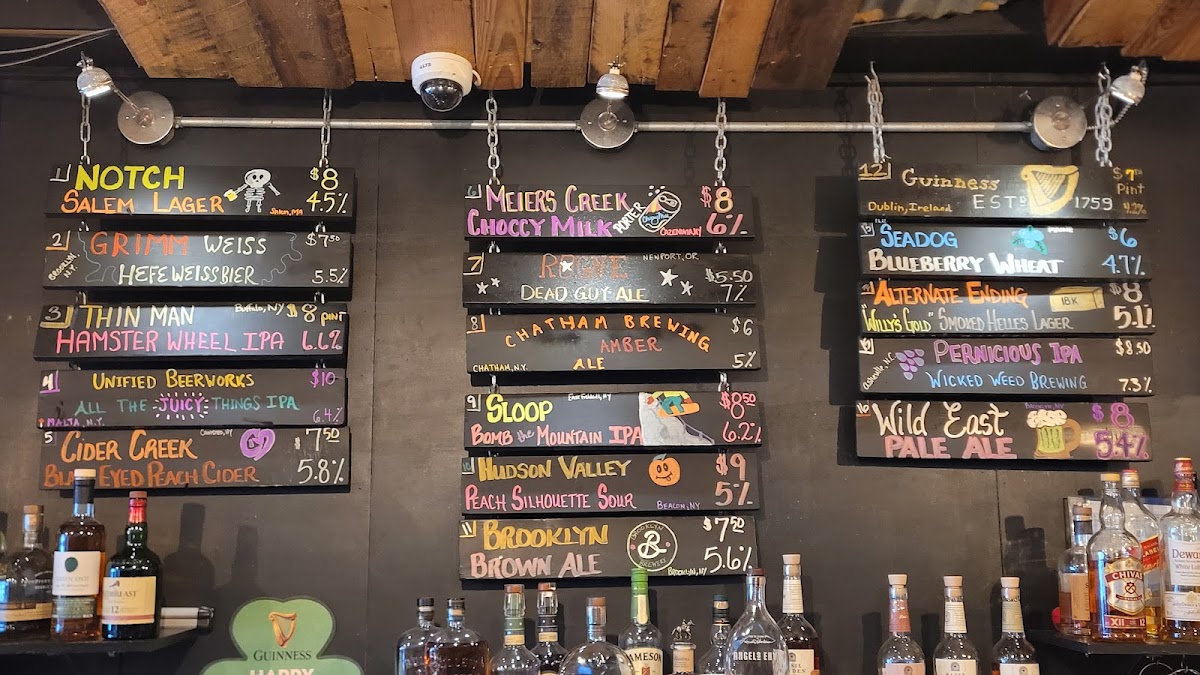 1 NOTCH $8
SALEM LAGER Salem, MA 4.5%
2 GRIMM WEISS $7.50
BROOKLYN, N.Y. HEFEWEISSBIER 5.5%
3 THIN MAN Buffalo, NY $8 PINT
HAMSTER WHEEL IPA 6.6%
4 UNIFIED BEERWORKS $10
ALL THE JUICY THINGS IPA
MALTA, N.Y. 6.4%
5 CIDER CREEK $7.50
BLACK EYED PEACH CIDER 5.8%
6 MEIERS CREEK PORTER $8
CHOCCY MILK CAZENOVIA, NY 6%
7 ROGUE NEWPORT, OR $5.50
DEAD GUY ALE 7%
8 CHATHAM BREWING $6
AMBER
CHATHAM, N.Y. ALE 5%
9 SLOOP $8.50
BOMB the MOUNTAIN IPA 6.2%
10 HUDSON VALLEY $9
PEACH SILHOUETTE SOUR BEACON, NY 5%
11 BROOKLYN $7.50
BROOKLYN BREWERY B
BROWN ALE BROOKLYN, NY 5.6%
12 GUINNESS $7.50 Pint
Dublin, Ireland ESTD 1759 4.2%
SEADOG $6
BLUEBERRY WHEAT 4.7%
ALTERNATE ENDING IBK $8
"WILLY'S GOLD" SMOKED HELLES LAGER 5.1%
PERNICIOUS IPA $8.50
Asheville, N.C. WICKED WEED BREWING 7.3%
16 WILD EAST BROOKLYN, NY $8
PALE ALE 5.4%
GUINNESS
HAPPY
REDBREAST
12
JAMESON
ANGEL'S ENVY
CHIVAS
XII
LABEL
Dewar's